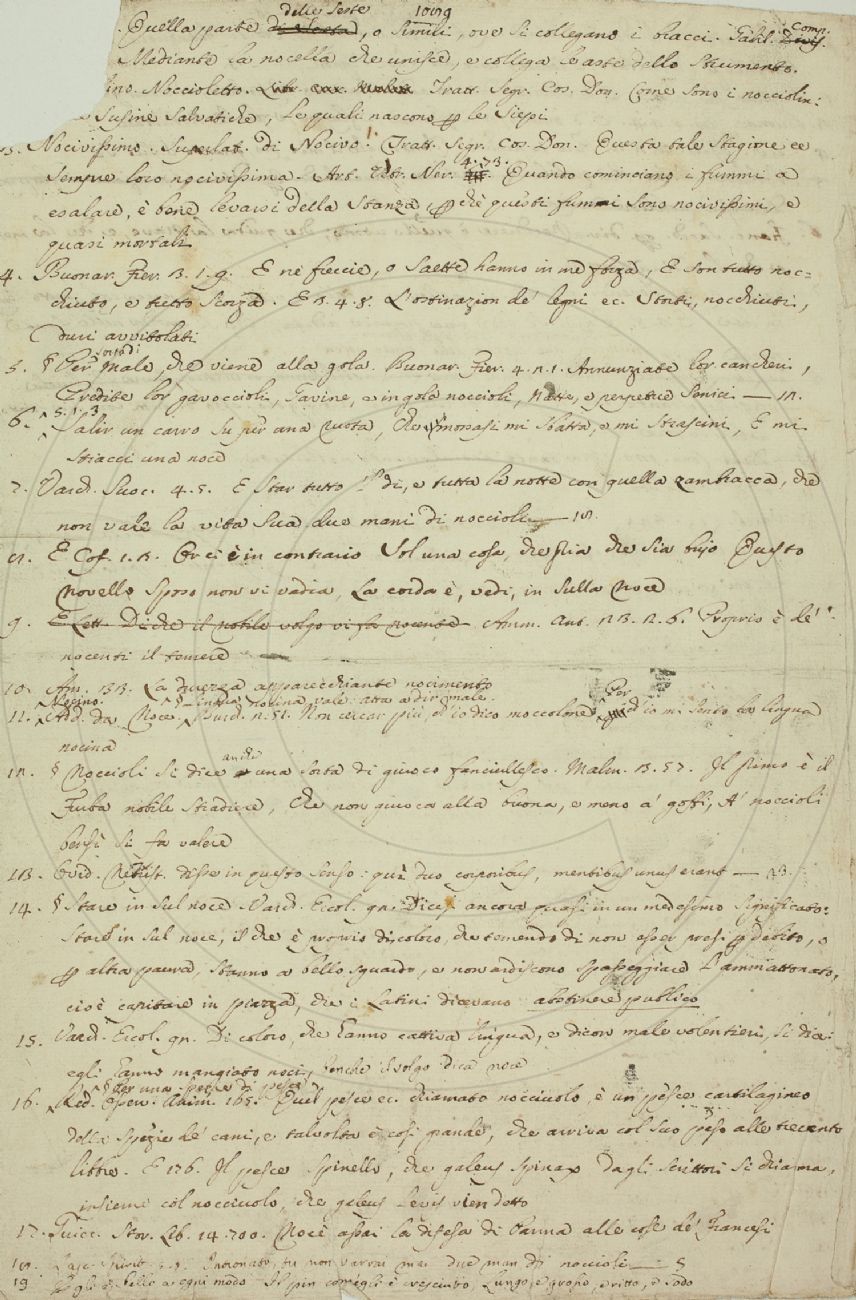 delle Seste 1009
Quella parte di Sesta, o simili, ove si collegano i bracci. Gal. Comp. Divis.
Mediante la nocella che unisce, e collega le aste dello strumento.
ino. Noccioletto. Tratt. Segr. Cos. Don. Come sono i nocciolin:
Susine salvatiche, le quali nascono p le siepi
3. Nocivissimo. Superlat. di Nocivo. Tratt. Segr. Cos. Don. Questa tale stagione ee
sempre loro nocivissima. Art. Vetr. Ner. 4. 73. Quando cominciano i fummi a
esalare, è bene levarsi della stanza, p chè questi fummi sono nocivissimi, e
quasi mortali
4. Buonar. Fier. 3. 1. 9. E nè freccie, o saette hanno in me forza, E son tutto noc-
chiuto, e tutto scorza. E 3. 4. 8. L'ostinazion de' legni ec. Storti, nocchiuti,
Duri avvitolati
5. § Per sorta di male, che viene alla gola. Buonar. Fier. 4. 2. 1. Annunziate lor cancheri,
Predite lor gavoccioli, Gavine, e in gola noccioli, Natte, e perpetue
6. 5. 1. 3 Salir un carro su per una ruota, Che mi sbatta, e mi strascini, E mi
stiacci una noce
7. Varch. Suoc. 4. 5. E star tutto 'l dì, e tutta la notte con quella zambracca, che
non vale la vita sua due mani di noccioli
8. E Cof. 1. 2. Or ci è in contrario Sol una cosa, che sia bujo Questo
Novello sposo non vi vadia, La corda è, vedi, in sulla noce
9. E Lett. Di che il nobile volgo vi fa nocente Amm. Ant. 23. 2. 6. Proprio è de'
nocenti il temere
10. Am. 33. La durezza apparecchiante nocimento
Nocino. § Lingua nocina vale: atta a dir male.
11. Add. da Noce. Burch. 2. 51. Non cercar più, ch'io dico moccolone Per ch'io mi sento la lingua
nocina
12. § Noccioli si dice anche una sorta di giuoco fanciullesco. Malm. 3. 57. Il primo è il
Furba nobile stradiere, Che non giuoca alla buona, e meno a' goffi, A' noccioli
bensì si fa valere
13. Ovid. disse in questo senso: qui duo corporibus, mentibus unus erant
14. § Stare in sul noce. Varch. Ercol. 92. Dicesi ancora quasi in un medesimo significato:
Stare in sul noce, il che è proprio di coloro, che temendo di non esser presi p debito, o
p altra paura, stanno a bello sguardo, e non ardiscono spasseggiare l'ammattonato,
cioè capitare in piazza, che i Latini dicevano abstinere publico
15. Varch. Ercol. 92. Di coloro, che hanno cattiva lingua, e dicon male volentieri, si dice:
egli hanno mangiato noci, benchè il volgo dica noce
§ Per una spezie di pesce
16. Red. Osserv. Anim. 165. Quel pesce ec. chiamato nocciuolo, è un pesce cartilagineo
della spezie de' cani, e talvolta è così grande, che arriva col suo peso alle trecento
libbre. E 176. Il pesce spinello, che galeus spinax dagli scrittori si chiama,
insieme col nocciuolo, che galeus levis vien detto
17. Guicc. Stor. Lib. 14. 700. Nocè assai la difesa di Parma alle cose de' Francesi
18. Lasc. Spirit. Intronato, tu non varrai mai due man di noccioli
19 bello a ogni modo Il pin comeche è cresciuto, Lungo, e grosso, e ritto, e sodo